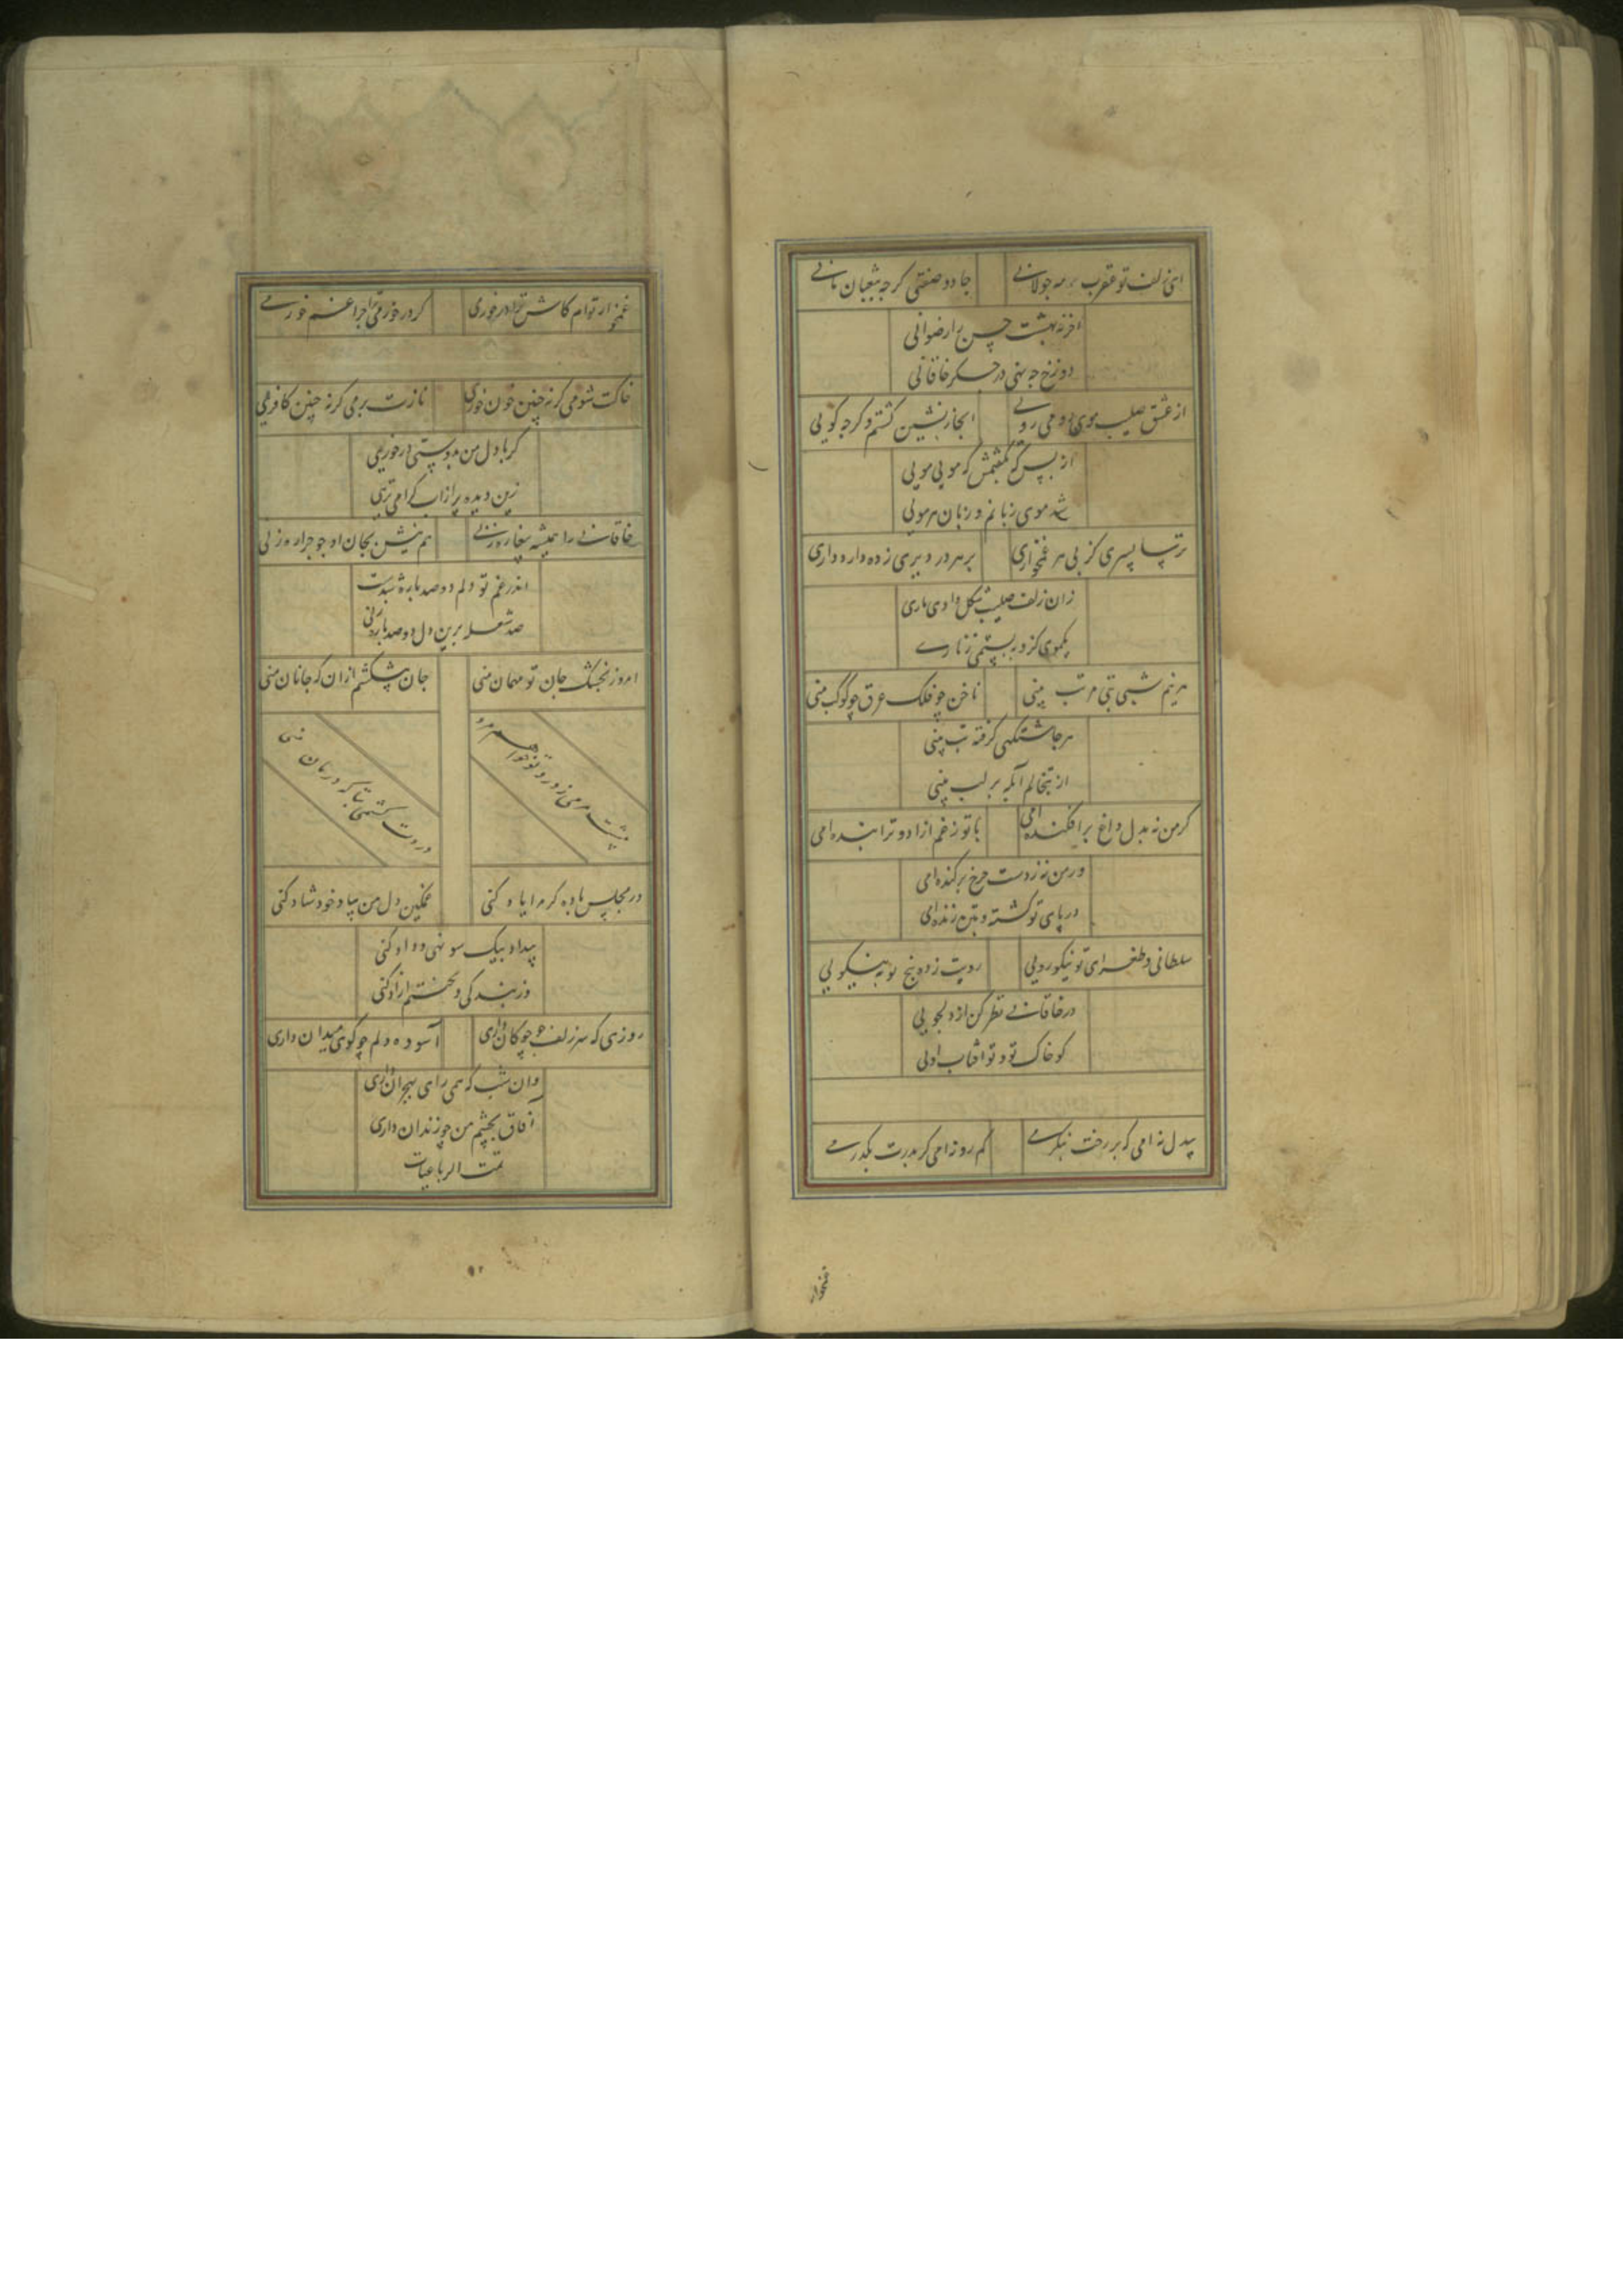 ای زلف تو عقرب مه جولانی
جادو صفتی گرچه بثعبان مانی
آخر نه بهشت حسن را رضوانی
دوزخ چه نهی در جگر خاقانی
از عشق صلیب موی رومی رویی
ابخاز نشین گشتم و گرجی گویی
از بس که بگفتمش که مویی مویی
شد موی زبانم و زبان هر مویی
ترسا پسری کز پی هر غمخواری
بر هر در دیری زده دارد داری
زان زلف صلیب شکل دادی باری
یکموی کزو ببستمی زناری
هر نیم شبی تبی مرتب بینی
ناخن چو فلک عرق چو کوکب بینی
هر چاشتگهی گرفته تب بینی
از تبخالم آبله بر لب بینی
گر من نه بدل داغ برافکنده امی
با تو ز غم آزاد و ترا بنده امی
ور من نه ز دست چرخ برکنده امی
در پای تو کشته و بتن زنده امی
سلطانی و طغرای تو نیکورویی
رویت زده پنج نوبه نیکویی
در خاقانی نظر کن از دلجویی
کو خاک تو و تو آفتاب اویی
بیدل نه امی که بر رخت بنگرمی
گمره نه امی گر بدرت بگذرمی
غمخوار
غمخوار توام کاش ترا درخورمی
گر درخورمی ترا چرا غم خورمی
خاکت شومی گر نه چنین خون خوری
نازت برمی گر نه چنین کافریی
گر با دل من بدوستی درخوریی
زین دیده پر از آب گرامی تریی
خاقانی را همیشه بیغاره زنی
هم نیش بجان او چو جراره زنی
اندر غم تو دلم دو صد پاره شدست
صد شعله برین دل دو صد پاره زنی
امروز بخشک جان تو مهمان منی
جان پیشکشم از آن که جانان منی
پیشت میرم ز درد تو
دردت بکشم بیا که درمان منی
در مجلس باده گر مرا یاد کنی
غمگین دل من بیاد خود شاد کنی
بیداد بیک سو نهی و داد کنی
وز بندگی وحشتم آزاد کنی
روزی که سر زلف چو چوگان داری
آسوده دلم چو گوی میدان داری
وان شب که همی رای بهجران داری
آفاق بچشم من چو زندان داری
تمت الرباعیات
۹۲